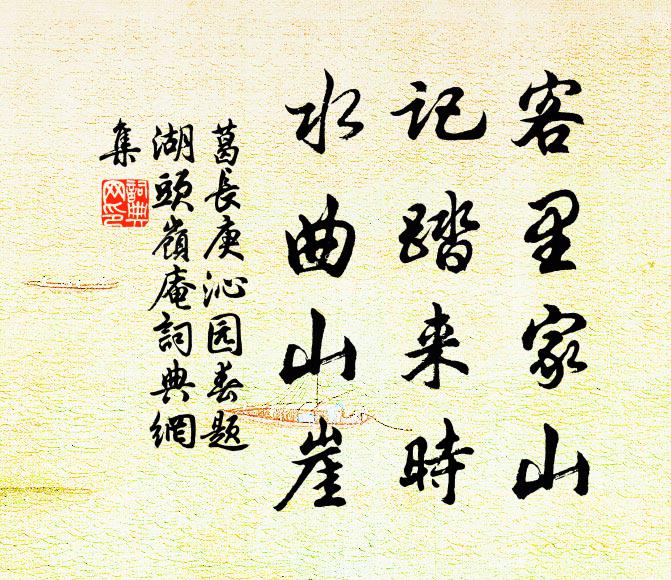 客里家山
记踏来时
水曲山崖
葛長庚沁园春题
湖頭嶺庵詞典網
集
詞典
网印